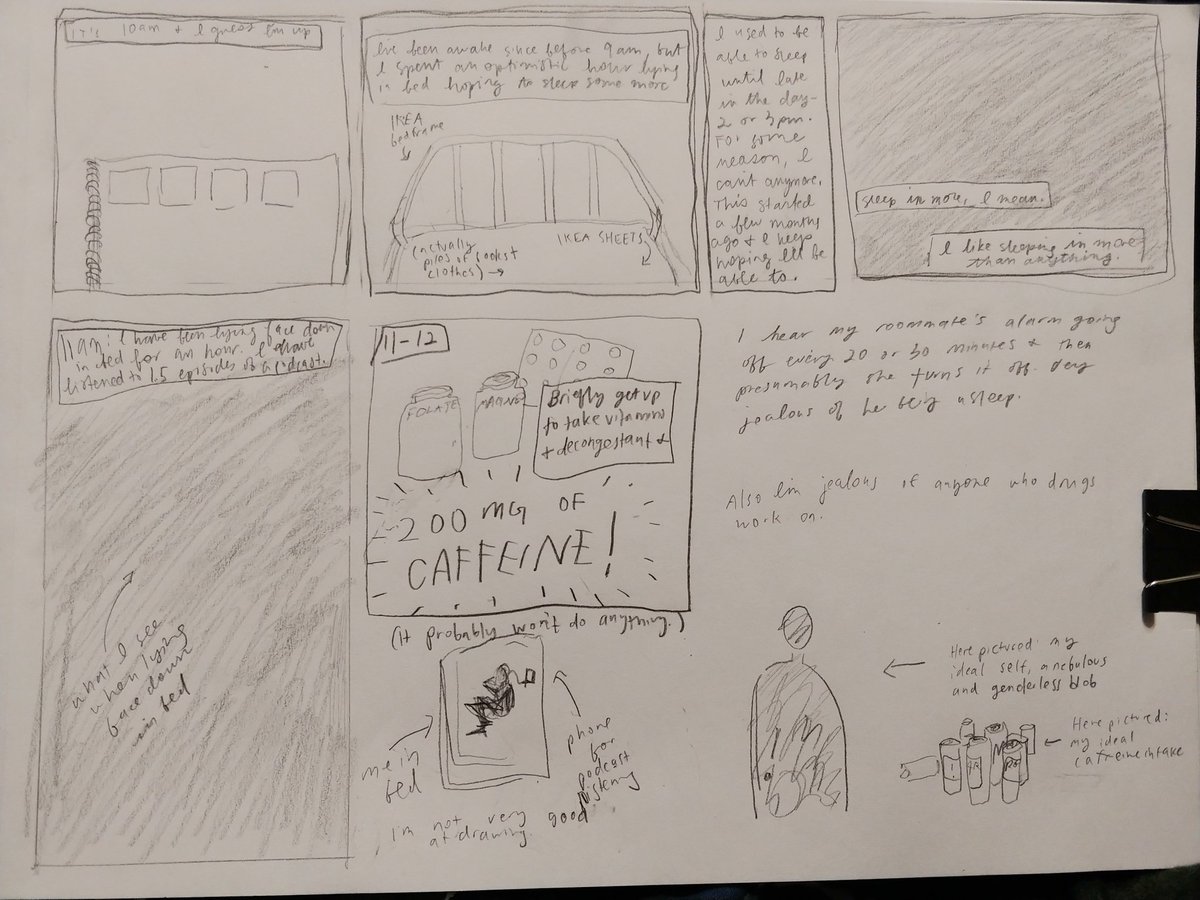 It's 10am + I guess I'm up
I've been awake since before 9am, but
I spent an optimistic hour lying
in bed hoping to sleep some more
IKEA
bedframe
(actually
piles of
clothes) →
IKEA SHEETS
I used to be
able to sleep
until late
in the day-
2 or 3pm.
For some
reason, I
can't anymore.
This started
a few months
ago + I keep
hoping I'll be
able to.
Sleep in more, I mean.
I like sleeping in more
than anything.
11am: I have been lying face down
in bed for an hour. I have
listened to 1.5 episodes of a podcast.
what I see
when lying
face down
in bed
11-12
FOLATE
MAGNE
Briefly get up
to take vitamins
+ decongestant +
200 MG OF
CAFFEINE!
(It probably won't do anything.)
me in
bed
phone
for
podcast
listening
I'm not very good
at drawing.
I hear my roommate's alarm going
off every 20 or 30 minutes + then
presumably she turns it off. Very
jealous of her being asleep.
Also I'm jealous of anyone who drugs
work on.
Here pictured: my
ideal self, a nebulous
and genderless blob
Here pictured:
my ideal
caffeine intake